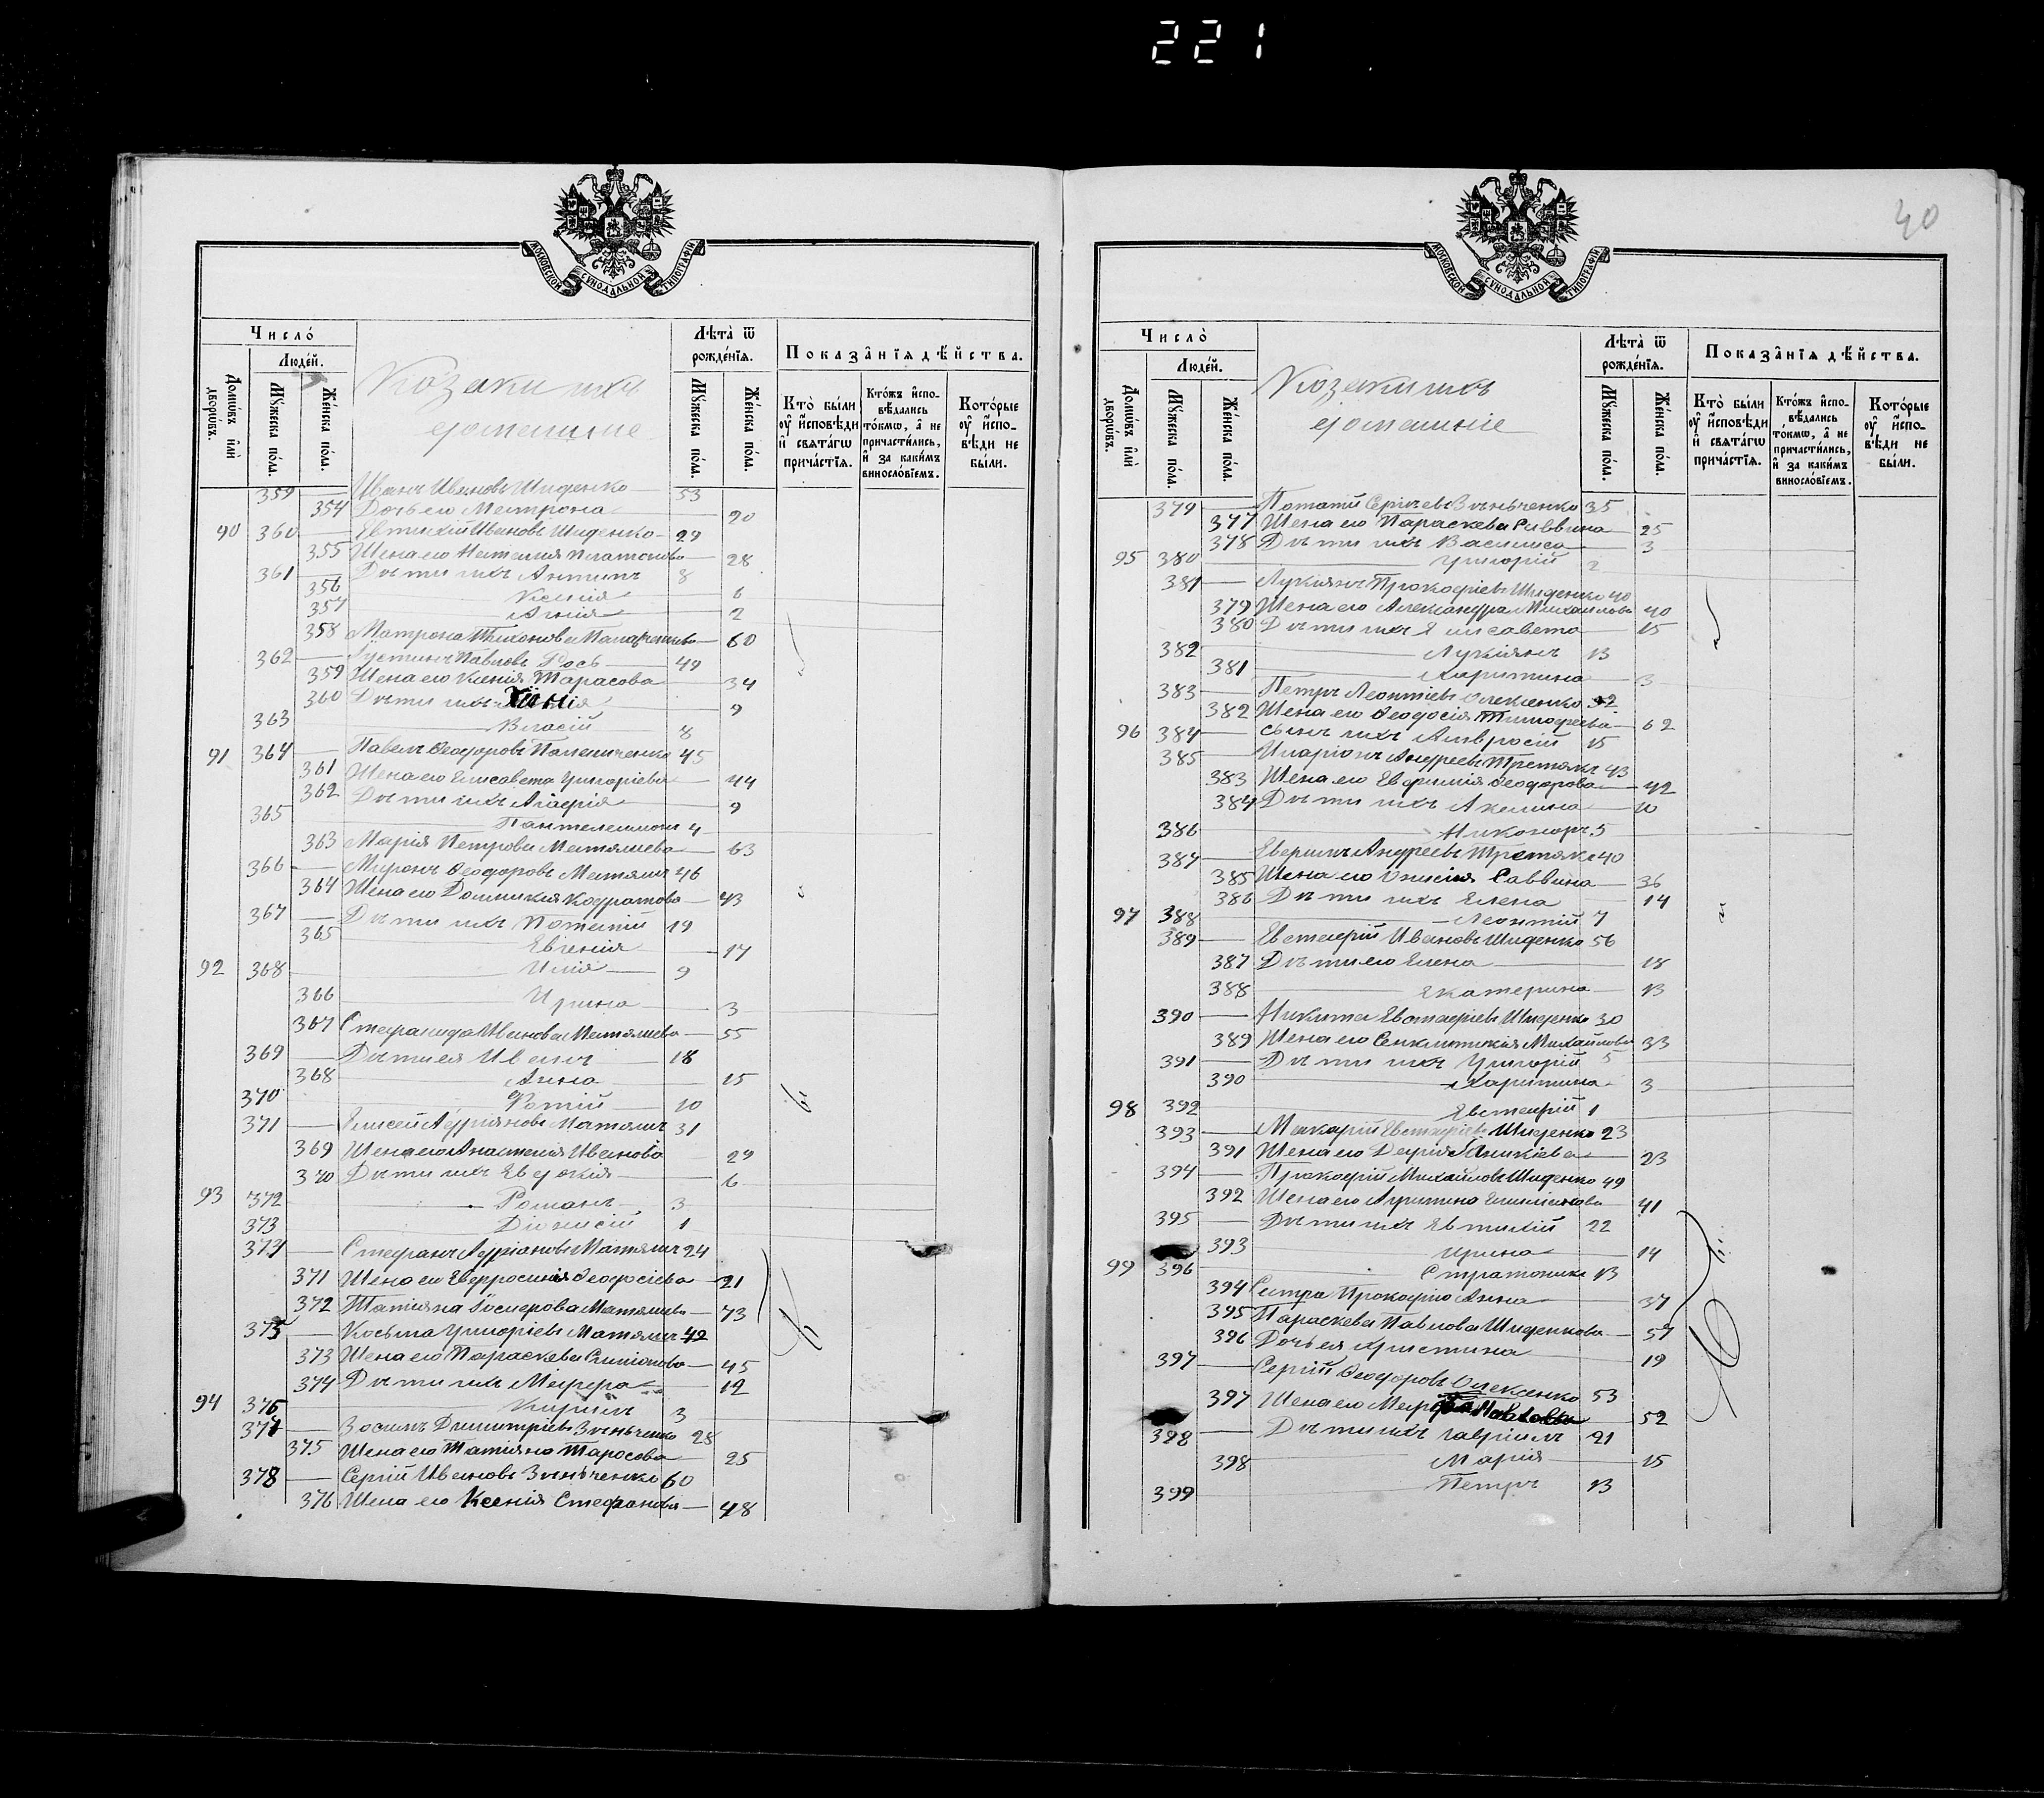 221
МОСКОВСКОЙ СѴНОДАЛЬНОЙ ТИПОГРАФІИ
Число̀
Людéй.
Домѡ́въ и҆лѝ дворѡ́въ.
Мꙋ́жеска по́ла.
Же́нска по́ла.
Козаки ихъ
домашніе
Лѣта̀ ѿ рожде́нїѧ.
Мꙋ́жеска по́ла.
Же́нска по́ла.
Показа̂нїѧ дѣ́йства.
Кто̀ бы́ли ᲂу҆ и҆сповѣ́ди и҆ свѧта́гѡ прича́стїѧ.
Кто́жъ и҆сповѣ́дались то́кмѡ, а҆ не причасти́лись, и҆ за каки́мъ винословїемъ.
Кото́рые ᲂу҆ и҆сповѣ́ди не бы́ли.
359 Иванъ Ивановъ Шиденко 53
354 Дочь его Матрона 20
90 360 Евтихій Ивановъ Шиденко 29
355 Жена его Наталия Платонова 28
361 Дѣти ихъ Антипъ 8
356 Ксенія 6
357 Агнія 2
358 Матрона Тихонова 60
362 Іустинъ Павловъ Рось 49
359 Жена его Ксенія Тарасова 34
360 Дѣти ихъ 9
363 Власій 8
91 364 Павелъ Ѳеодоровъ 45
361 Жена его Елисавета Григоріева 44
362 Дѣти ихъ Агафія 9
365 Пантелеимонъ 4
363 Марія Петрова Матяшева 63
366 Миронъ Ѳеодоровъ Матяшъ 46
364 Жена его Домникія Кодратова 43
367 Дѣти ихъ Потапій 19
365 Евгенія 17
92 368 Илія 9
366 Ирина 3
367 Стефанида Иванова Матяшева 55
369 Дѣти ея Иванъ 18
368 Анна 15
370 Фотій 10
371 Елисей Адріановъ Матяшъ 31
369 Жена его Анастасія Иванова 29
370 Дѣти ихъ Евдокія 6
93 372 Романъ 3
373 Діонисій 1
374 Стефанъ Адріановъ Матяшъ 24
371 Жена его Евфросинія Ѳеодосіева 21
372 Татіяна Матяшева 73
375 Косьма Григоріевъ Матяшъ 42
373 Жена его Параскева Симіонова 45
374 Дѣти ихъ Марфа 12
94 376 Кирилъ 3
377 Зосимъ Димитріевъ Зѣньченко 28
375 Жена его Татіяна Тарасова 25
378 Сергій Ивановъ Зѣньченко 60
376 Жена его Ксенія Стефанова 48
40
МОСКОВСКОЙ СѴНОДАЛЬНОЙ ТИПОГРАФІИ
Число̀
Людéй.
Домѡ́въ и҆лѝ дворѡ́въ.
Мꙋ́жеска по́ла.
Же́нска по́ла.
Козаки ихъ
домашніе
Лѣта̀ ѿ рожде́нїѧ.
Мꙋ́жеска по́ла.
Же́нска по́ла.
Показа̂нїѧ дѣ́йства.
Кто̀ бы́ли ᲂу҆ и҆сповѣ́ди и҆ свѧта́гѡ прича́стїѧ.
Кто́жъ и҆сповѣ́дались то́кмѡ, а҆ не причасти́лись, и҆ за каки́мъ винословїемъ.
Кото́рые ᲂу҆ и҆сповѣ́ди не бы́ли.
379 Потапій Сергіевъ Зѣньченко 35
377 Жена его Параскева Саввина 25
378 Дѣти ихъ Василиса 3
95 380 Григорій 2
381 Лукіянъ Прокофіевъ Шиденко 40
379 Жена его Александра Михаилова 40
380 Дѣти ихъ Елисавета 15
382 Лукіянъ 13
381 Харитина 3
383 Петръ Леонтіевъ Олексенко
382 Жена его Ѳеодосія Тимофеева 62
96 384 сынъ ихъ Амвросій 15
385 Иларіонъ Андреевъ Третякъ 43
383 Жена его Евфимія Ѳеодорова 42
384 Дѣти ихъ Акилина 10
386 Никоноръ 5
387 Андреевъ Третякъ 40
385 Жена его Онисія Саввина 36
386 Дѣти ихъ Елена 14
97 388 Леонтій 7
389 Евстафій Ивановъ Шиденко 56
387 Дѣти его Елена 18
388 Екатерина 13
390 Никита Евстафіевъ Шиденко 30
389 Жена его Синклитикія Михайлова 33
391 Дѣти ихъ Григорій 5
390 Харитина 3
98 392 Евстафій 1
393 Макарій Евстафіевъ Шиденко 23
391 Жена его Дафія Аникіева 23
394 Прокофій Михайловъ Шиденко 49
392 Жена его 41
395 Дѣти ихъ Евтихій 22
393 Ирина 14
99 396 Стратоникъ 13
394 Сестра Прокофію Анна 37
395 Параскева Павлова Шиденкова 57
396 Дочь ея Христина 19
397 Сергій Ѳеодоровъ Олексенко 53
397 Жена его Павлова 52
398 Дѣти ихъ Гавріилъ 21
398 Марія 15
399 Петръ 13